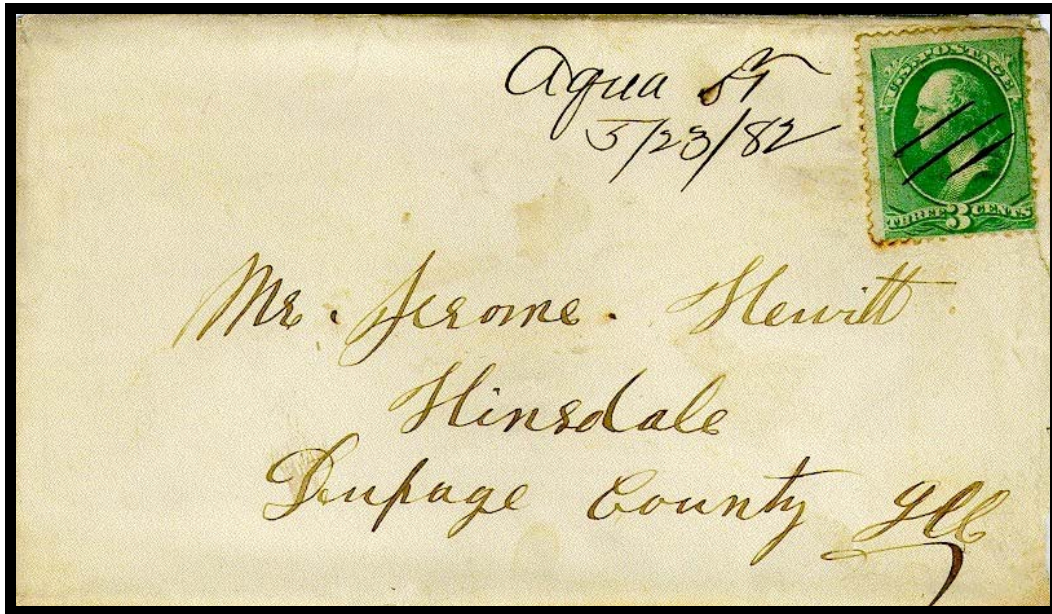 Aqua ST
5/23/82
U.S. POSTAGE
THREE 3 CENTS
Mr. Jerome. Hewitt
Hinsdale
Dupage County Ill